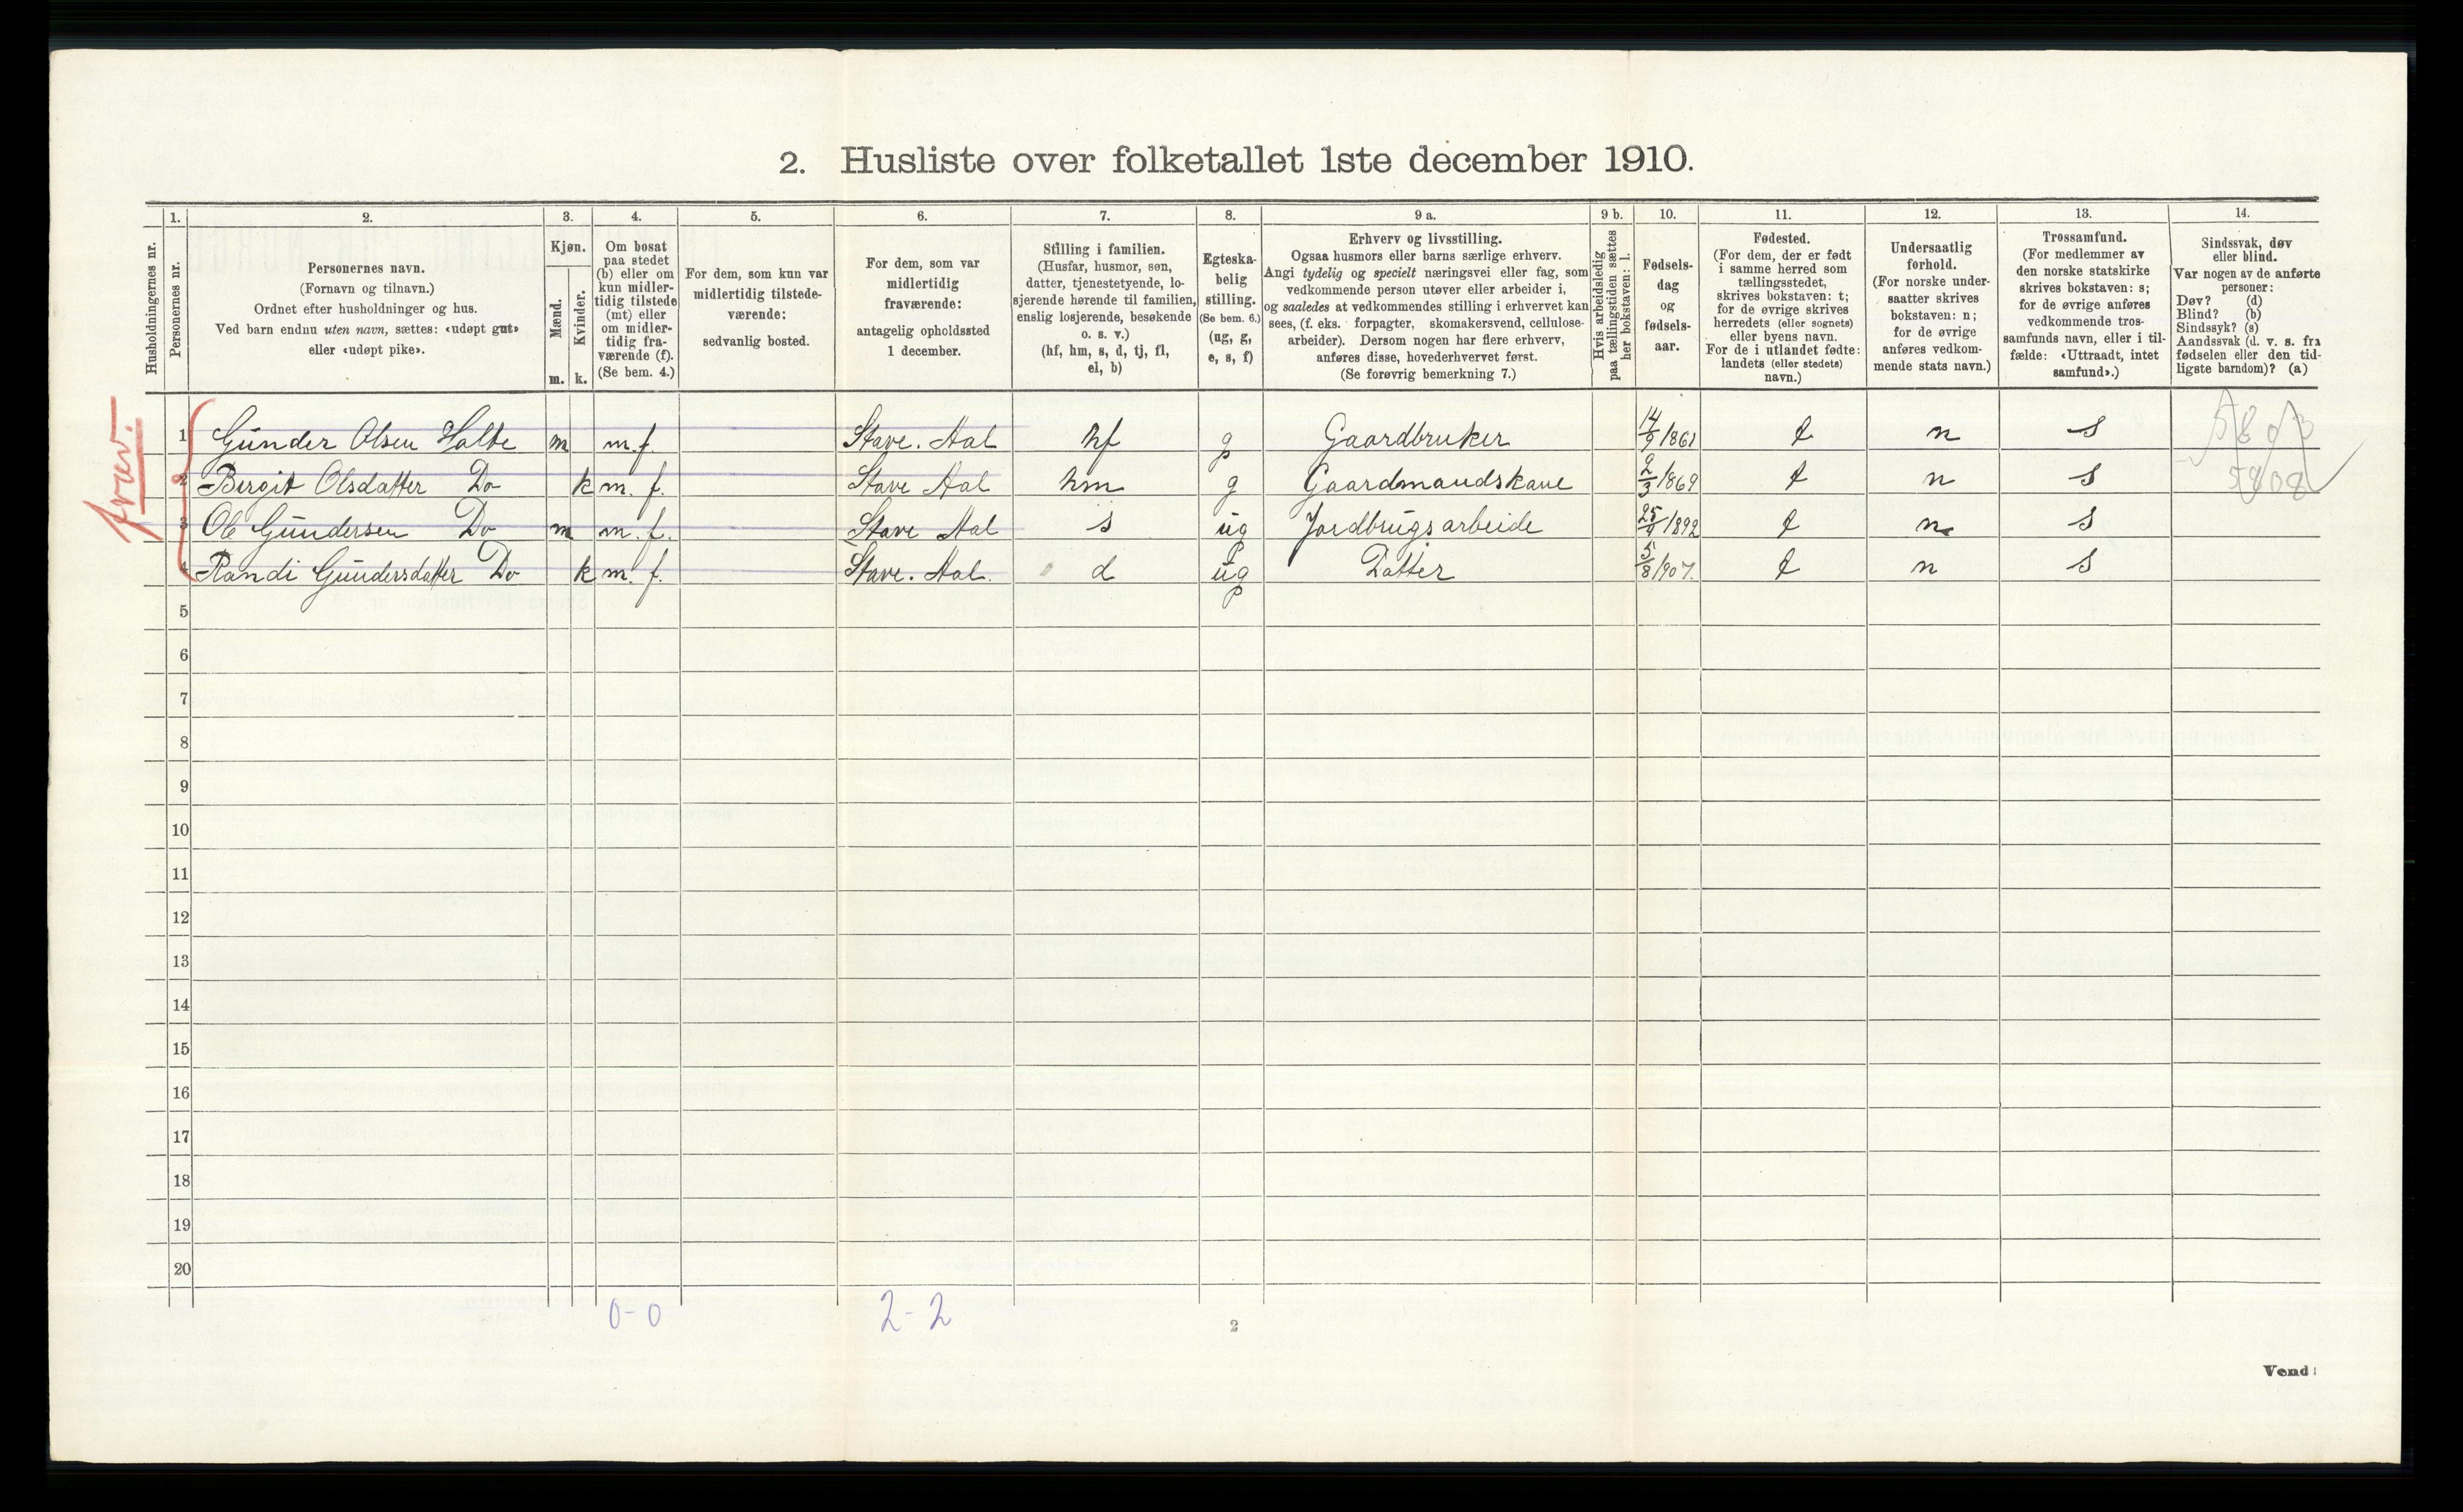 2. Husliste over folketallet 1ste december 1910.
Husholdningernes nr.
1.
Personernes nr.
2.
Personernes navn.
(Fornavn og tilnavn.)
Ordnet efter husholdninger og hus.
Ved barn endnu uten navn, sættes: «udøpt gut»
eller «udøpt pike».
3.
Kjøn.
Mænd.
Kvinder.
m. k.
4.
Om bosat
paa stedet
(b) eller om
kun midler-
tidig tilstede
(mt) eller
om midler-
tidig fra-
værende (f).
(Se bem. 4.)
5.
For dem, som kun var
midlertidig tilstede-
værende:
sedvanlig bosted.
6.
For dem, som var
midlertidig
fraværende:
antagelig opholdssted
1 december.
7.
Stilling i familien.
(Husfar, husmor, søn,
datter, tjenestetyende, lo-
sjerende hørende til familien,
enslig losjerende, besøkende
o. s. v.)
(hf, hm, s, d, tj, fl,
el, b)
8.
Egteska-
belig
stilling.
(Se bem. 6.)
(ug, g,
e, s, f)
9 a.
Erhverv og livsstilling.
Ogsaa husmors eller barns særlige erhverv.
Angi tydelig og specielt næringsvei eller fag, som
vedkommende person utøver eller arbeider i,
og saaledes at vedkommendes stilling i erhvervet kan
sees, (f. eks. forpagter, skomakersvend, cellulose-
arbeider). Dersom nogen har flere erhverv,
anføres disse, hovederhvervet først.
(Se forøvrig bemerkning 7.)
9 b.
Hvis arbeidsledig
paa tællingstiden sættes
her bokstaven: l.
10.
Fødsels-
dag
og
fødsels-
aar.
11.
Fødested.
(For dem, der er født
i samme herred som
tællingsstedet,
skrives bokstaven: t;
for de øvrige skrives
herredets (eller sognets)
eller byens navn.
For de i utlandet fødte:
landets (eller stedets)
navn.)
12.
Undersaatlig
forhold.
(For norske under-
saatter skrives
bokstaven: n;
for de øvrige
anføres vedkom-
mende stats navn.)
13.
Trossamfund.
(For medlemmer av
den norske statskirke
skrives bokstaven: s;
for de øvrige anføres
vedkommende tros-
samfunds navn, eller i til-
fælde: «Uttraadt, intet
samfund».)
14.
Sindssvak, døv
eller blind.
Var nogen av de anførte
personer:
Døv? (d)
Blind? (b)
Sindssyk? (s)
Aandssvak (d. v. s. fra
fødselen eller den tid-
ligste barndom)? (a)
fravær.
1 Gunder Olsen Holte m m.f. Stave. Aal hf g Gaardbruker 14/9 1861 t n s
2 Birgit Olsdatter Do k m. f. Stave Aal hm g Gaardmandskane 2/3 1869 t n s
3 Ole Gundersen Do m m. f. Stave Aal s ug Jordbrugsarbeide 25/9 1892 t n s
4 Randi Gundersdatter Do k m. f. Stave. Aal. d ug Datter 5/8 1907. t n s
5
6
7
8
9
10
11
12
13
14
15
16
17
18
19
20
0-0 2-2
2
Vend!